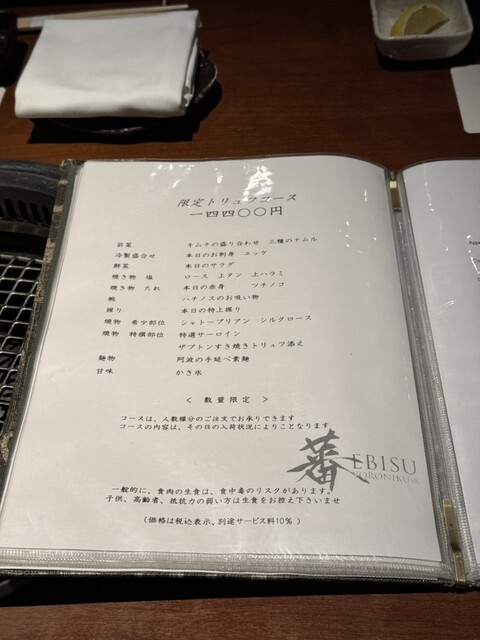 限定トリュフコース
一四四〇〇円
前菜 キムチの盛り合わせ 三種のナムル
冷製盛合せ 本日のお刺身 ユッケ
鮮菜 本日のサラダ
焼き物 塩 ロース 上タン 上ハラミ
焼き物 たれ 本日の赤身 ツチノコ
椀 ハチノスのお吸い物
握り 本日の特上握り
焼物 希少部位 シャトーブリアン シルクロース
焼物 特撰部位 特選サーロイン
ザブトンすき焼きトリュフ添え
麺物 阿波の手延べ素麺
甘味 かき氷
< 数量限定 >
コースは、人数様分のご注文でお承りできます
コースの内容は、その日の入荷状況によりことなります
蕃
EBISU
YORONIKU
一般的に、食肉の生食は、食中毒のリスクがあります。
子供、高齢者、抵抗力の弱い方は生食をお控え下さいませ
(価格は税込表示、別途サービス料10%)